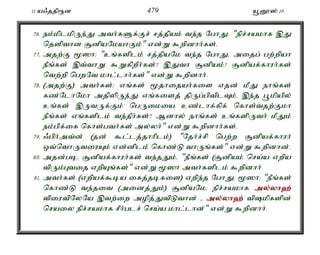 11 யஃததிரூன 479 யூனுஸ் 10
76. நம்மிடமிருந்து அவர்களுக்குச் சத்தியம் வந்த போது, "நிச்சயமாக இது
தெளிவான சூனியமேயாகும்" என்று கூறினார்கள்.
77. அதற்கு மூஸா: "உங்களிடம் சத்தியமே வந்த போது, அதைப் பற்றியா
நீங்கள் இவ்வாறு கூறுகிறீர்கள்? இதுவா சூனியம்? சூனியக்காரர்கள்
வெற்றி பெறவே மாட்டார்கள்" என்று கூறினார்.
78. (அதற்கு) அவர்கள்: எங்கள் மூதாதையர்களை எதன் மீது நாங்கள்
கண்டோமோ அதிலிருந்து எங்களைத் திருப்பிவிடவும், இந்த பூமியில்
உங்கள் இருவருக்கும் பெருமையை உண்டாக்கிக் கொள்வதற்குமா
நீங்கள் எங்களிடம் வந்தீர்கள்? ஆனால் நாங்கள் உங்களிருவர் மீதும்
நம்பிக்கை கொள்பவர்கள் அல்லர்" என்று கூறினார்கள்.
79. ஃபிர்அவ்ன் (தன் கூட்டத்தாரிடம்) "தேர்ச்சி பெற்ற சூனியக்காரர்
ஒவ்வொருவரையும் என்னிடம் கொண்டு வாருங்கள்" என்று கூறினான்.
80. அதன்படி, சூனியக்காரர்கள் வந்ததும், "நீங்கள் (சூனியம் செய்ய எறிய
விரும்புவதை எறியுங்கள்" என்று மூஸா அவர்களிடம் கூறினார்.
81. அவர்கள் (எறியக்கூடிய கைத்தடிகளை) எறிந்த போது, மூஸா: "நீங்கள்
கொண்டு வந்தவை (அனைத்தும்) சூனியமே; நிச்சயமாக அல்லாஹ்
விரைவிலேயே இவற்றை அழித்துவிடுவான் - அல்லாஹ் விஷமிகளின்
செயலை நிச்சயமாக சீர்படச் செய்ய மாட்டான்" என்று கூறினார்.